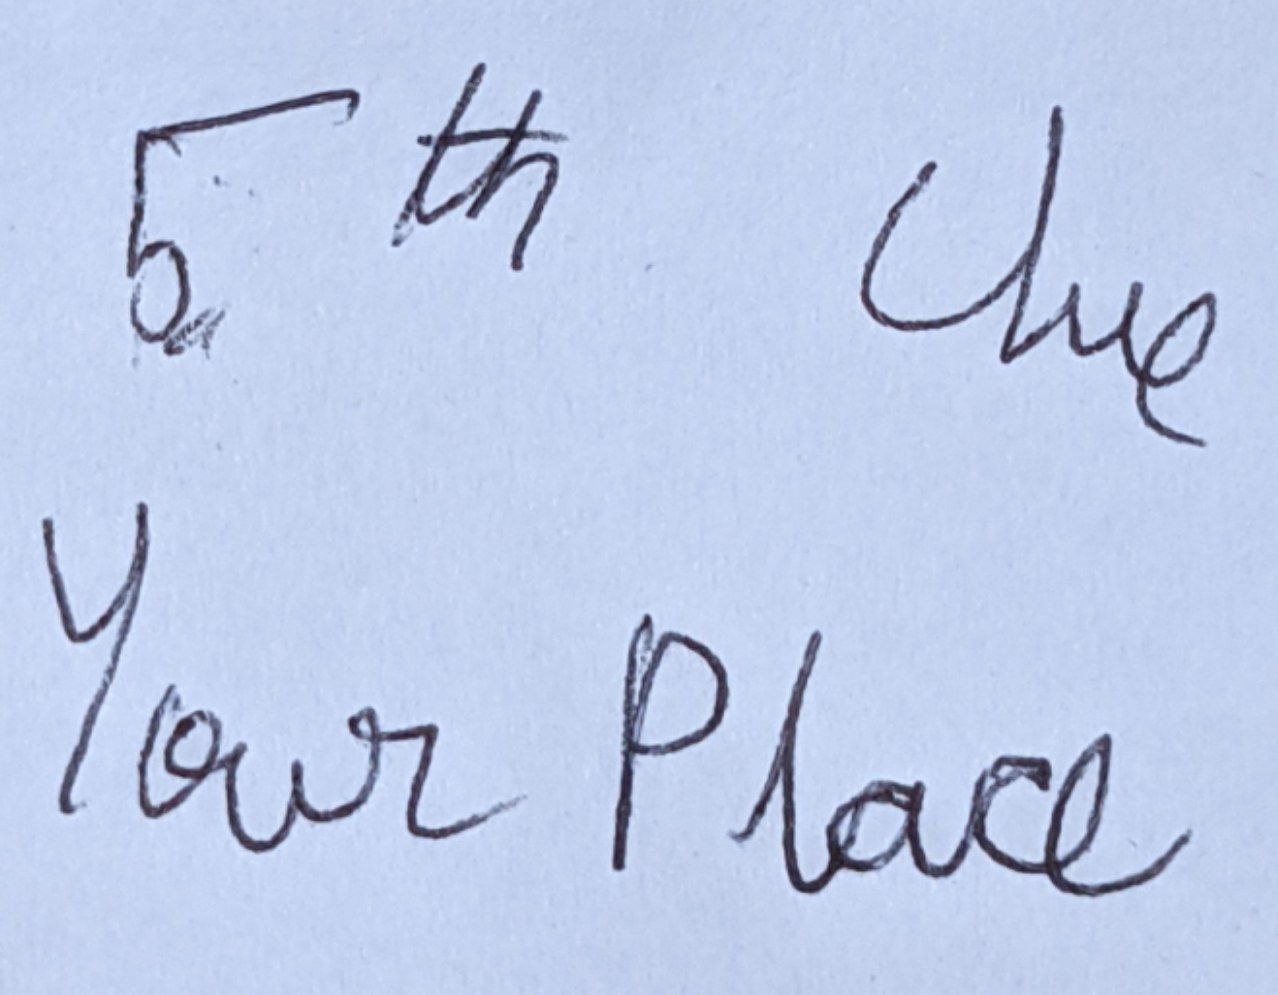 5th Clue
Your Place